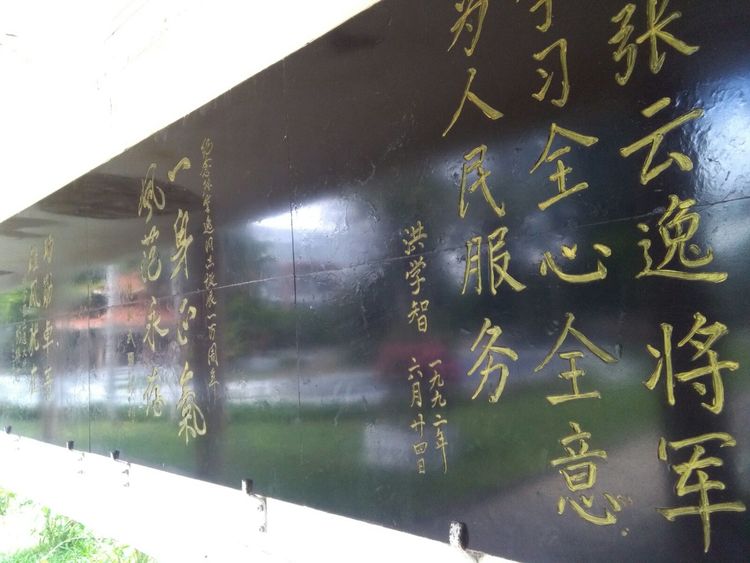 张云逸将军
学习全心全意
为人民服务
洪学智
一九九二年
六月廿四日
纪念张云逸同志诞辰一百周年
一身正气
风范永存